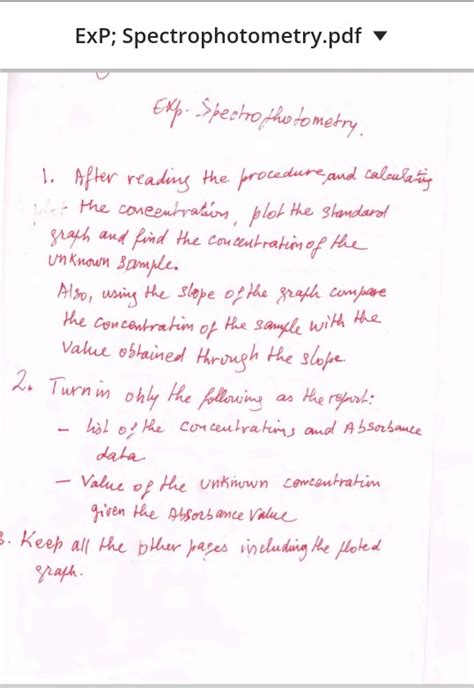 ExP; Spectrophotometry.pdf
Exp. Spectrophotometry.
1. After reading the procedure, and calculating
the concentration, plot the standard
graph and find the concentration of the
unknown sample.
Also, using the slope of the graph compare
the concentration of the sample with the
value obtained through the slope
2. Turn in only the following as the report:
- list of the concentrations and Absorbance
data
- Value of the unknown concentration
given the Absorbance value
3. Keep all the other pages including the ploted
graph.